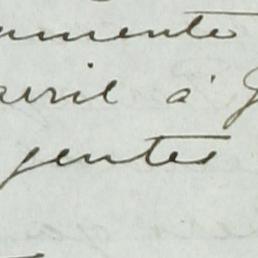 amente
avril à
gentes